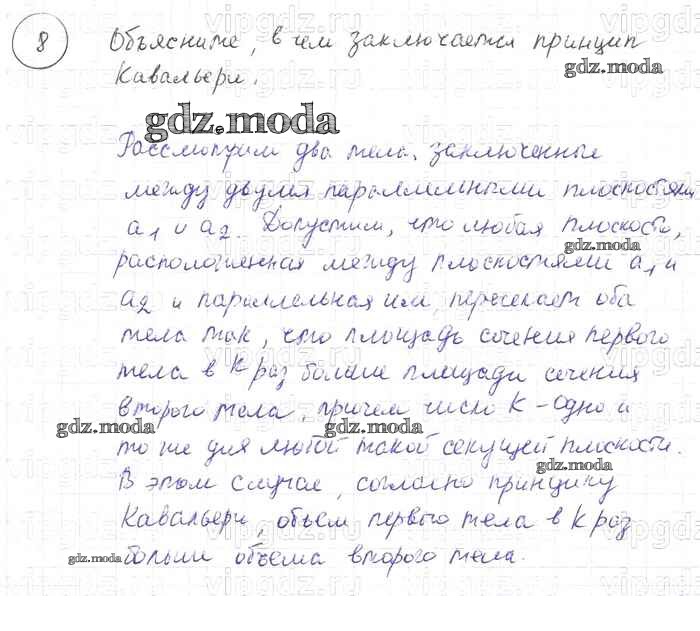 8 Объясните, в чем заключается принцип
gdz.moda
Кавальери.
gdz.moda
Рассмотрим два тела, заключенные
между двумя параллельными плоскостями
a1 и a2. Допустим, что любая плоскость,
gdz.moda
расположенная между плоскостями a1 и
a2 и параллельная им, пересекает оба
тела так, что площадь сечения первого
тела в K раз больше площади сечения
второго тела, причем число K - одно и
gdz.moda gdz.moda
то же для любой такой секущей плоскости.
gdz.moda
В этом случае, согласно принципу
Кавальери, объем первого тела в K раз
gdz.moda
больше объема второго тела.